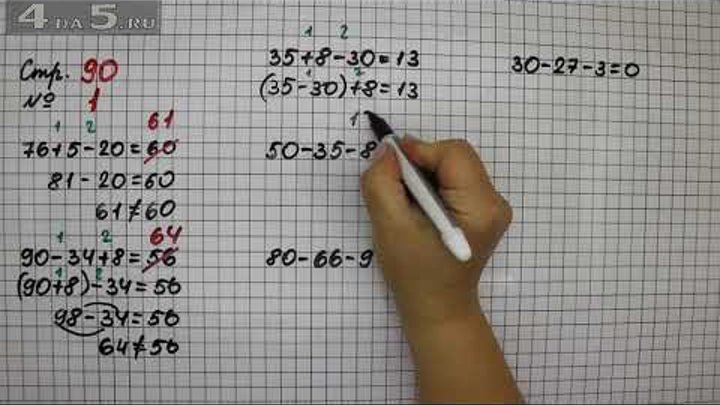 4 ДА 5.RU
Стр. 90
№ 1
1 2 61
76+5-20=60
81-20=60
61≠60
1 2 64
90-34+8=56
1 2
(90+8)-34=56
98-34=56
64≠56
1 2
35+8-30=13
1 2
(35-30)+8=13
1
50-35-8
80-66-9
30-27-3=0